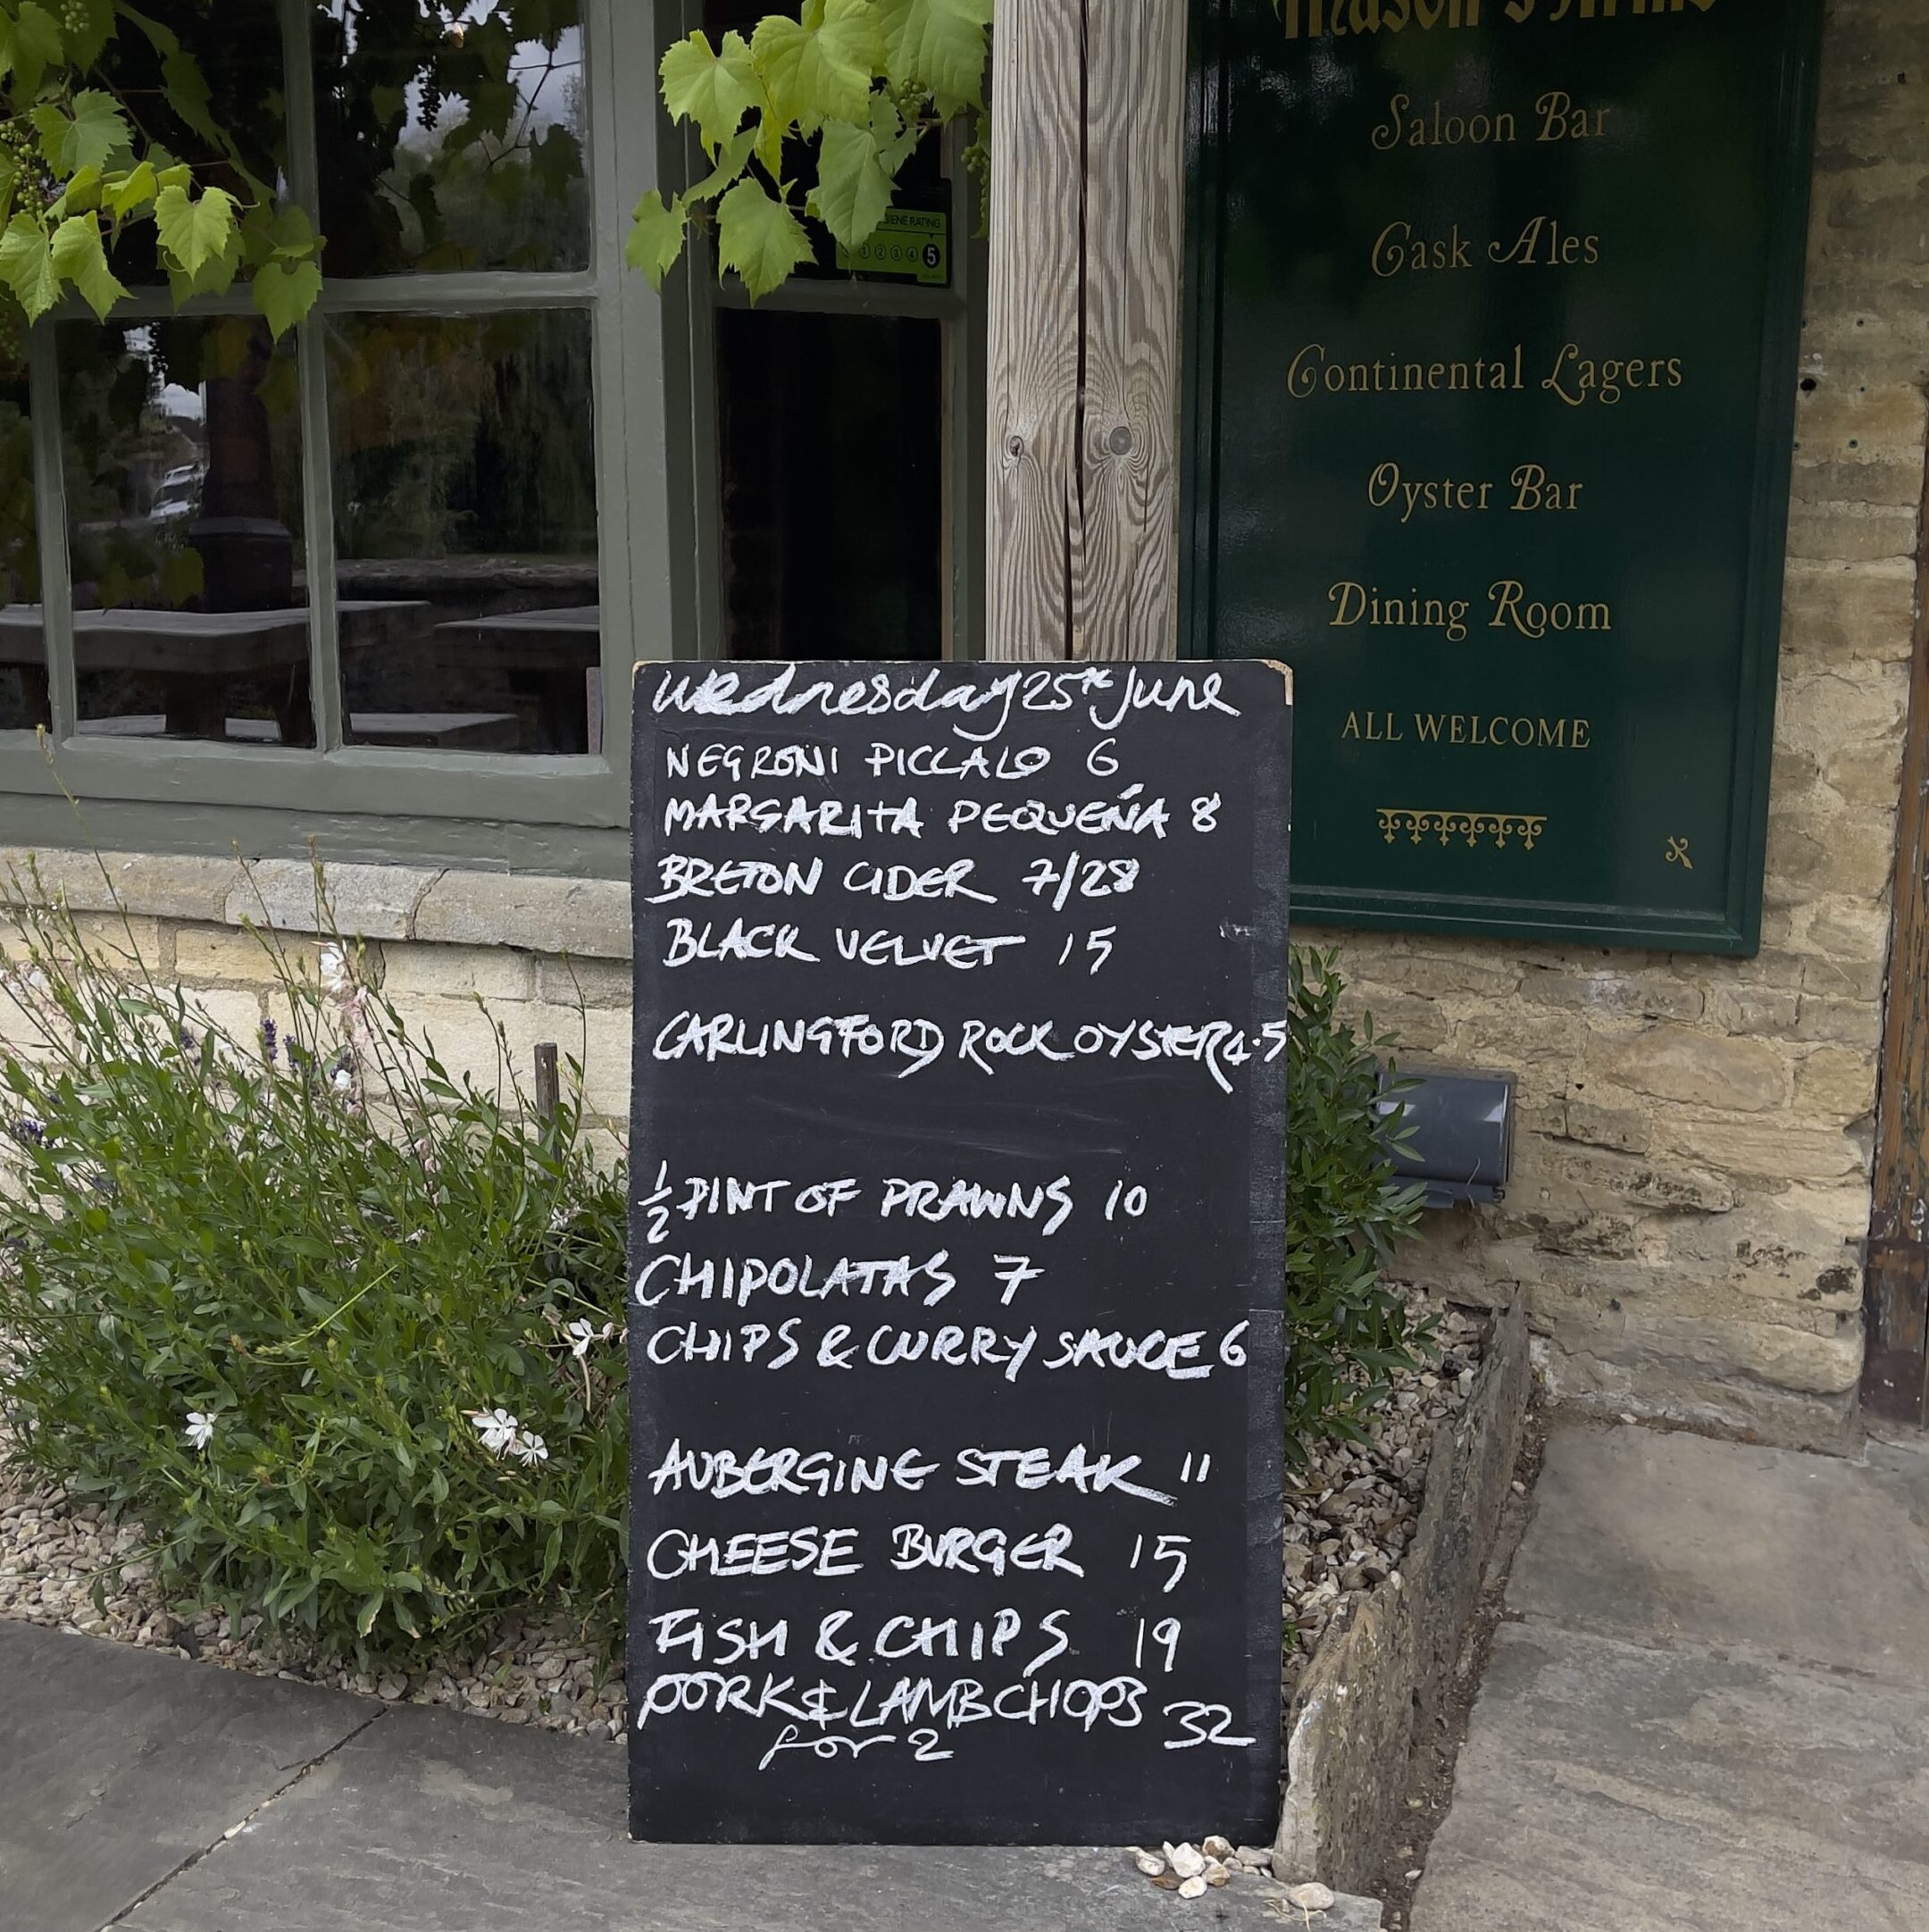 Mason's Arms
Saloon Bar
Cask Ales
Continental Lagers
Oyster Bar
Dining Room
ALL WELCOME
GIENE RATING
1 2 3 4 5
Wednesday 25th June
NEGRONI PICCALO 6
MARGARITA PEQUEÑA 8
BRETON CIDER 7/28
BLACK VELVET 15
CARLINGFORD ROCK OYSTER 4.5
½ PINT OF PRAWNS 10
CHIPOLATAS 7
CHIPS & CURRY SAUCE 6
AUBERGINE STEAK 11
CHEESE BURGER 15
FISH & CHIPS 19
PORK & LAMB CHOPS 32
for 2